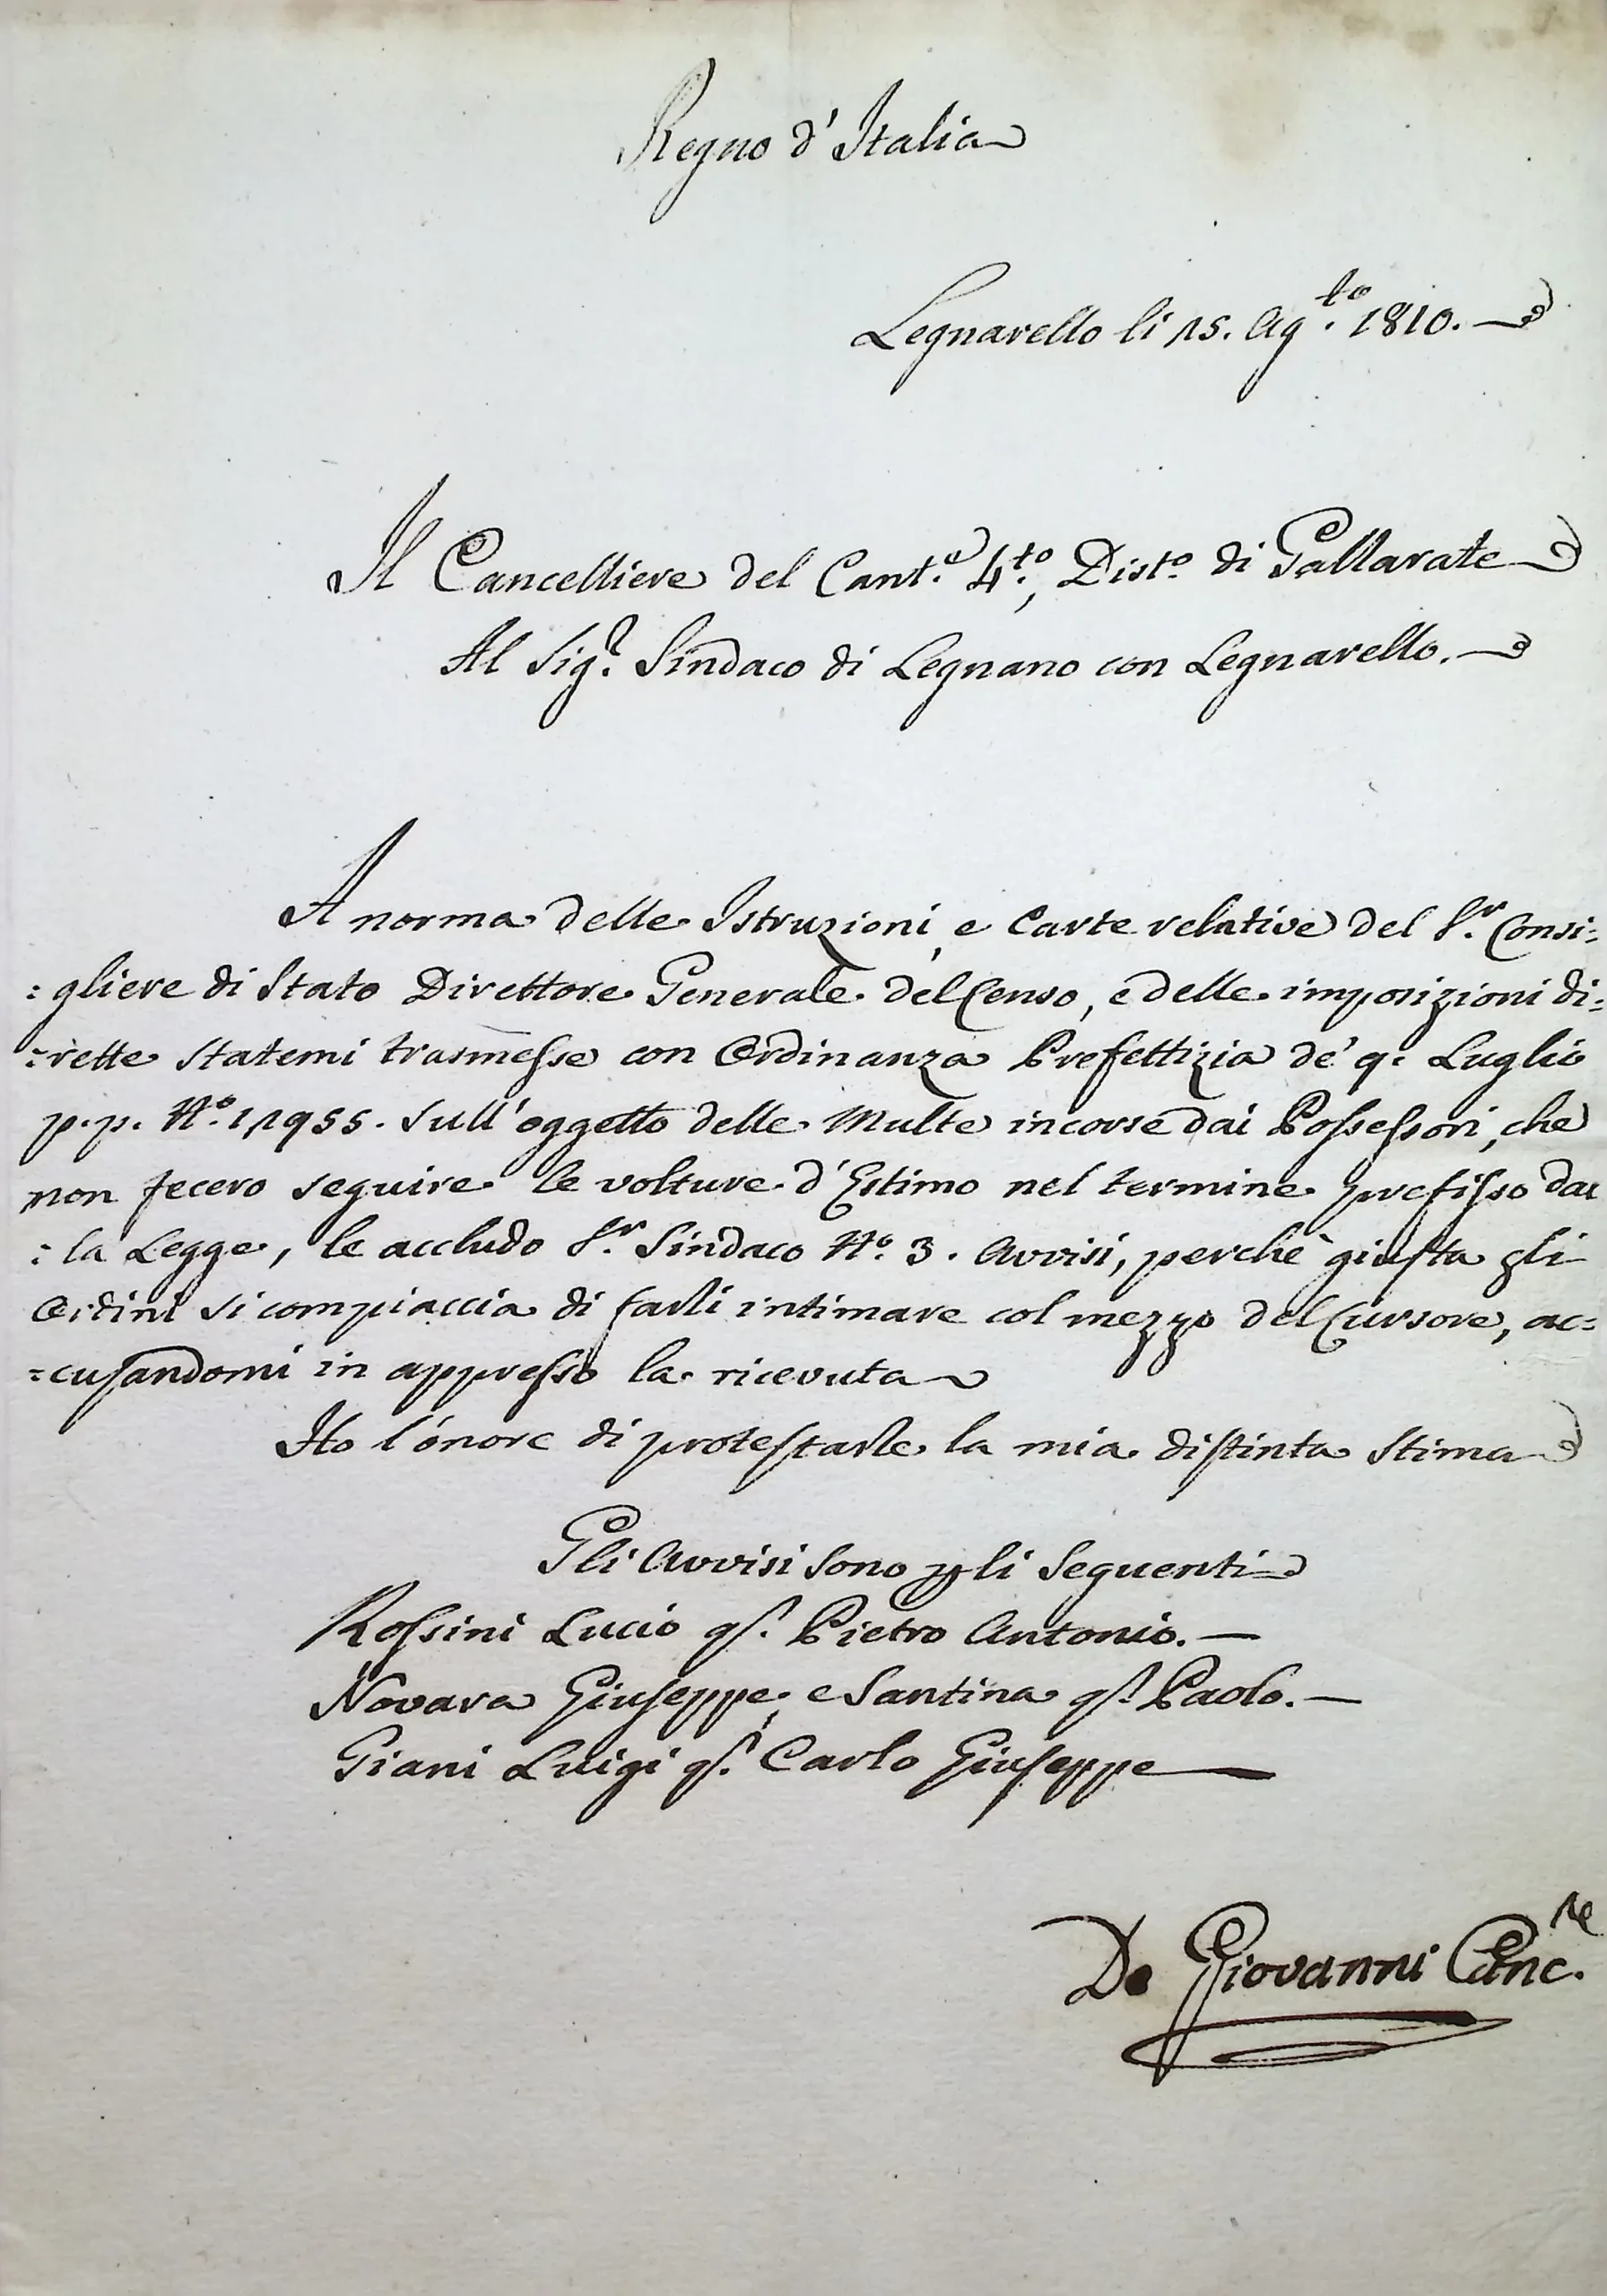 Regno d'Italia
Legnarello li 15. Ag.to 1810.
Il Cancelliere del Cant.e 4.to, Dist.o di Gallarate
Al Sig.r Sindaco di Legnano con Legnarello.
A norma delle Istruzioni, e Carte relative del S.r Consi:
:gliere di Stato Direttore Generale del Censo, e delle imposizioni di:
:rette statemi trasmesse con Ordinanza Prefettizia de' 9. Luglio
p.p. N.o 11955. sull'oggetto delle Multe incorse dai Possessori, che
non fecero seguire le volture d'Estimo nel termine prefisso dal
:la Legge, le accludo S.r Sindaco N.o 3. Avvisi, perchè giusta gli
Ordini si compiaccia di farli intimare col mezzo del Cursore, ac=
=cusandomi in appresso la ricevuta
Ho l'onore di protestarle la mia distinta stima
Gli Avvisi sono gli seguenti
Rossini Lucio q.m Pietro Antonio. —
Novara Giuseppe, e Santina q.m Paolo. —
Giani Luigi q.m Carlo Giuseppe —
De Giovanni Canc.re